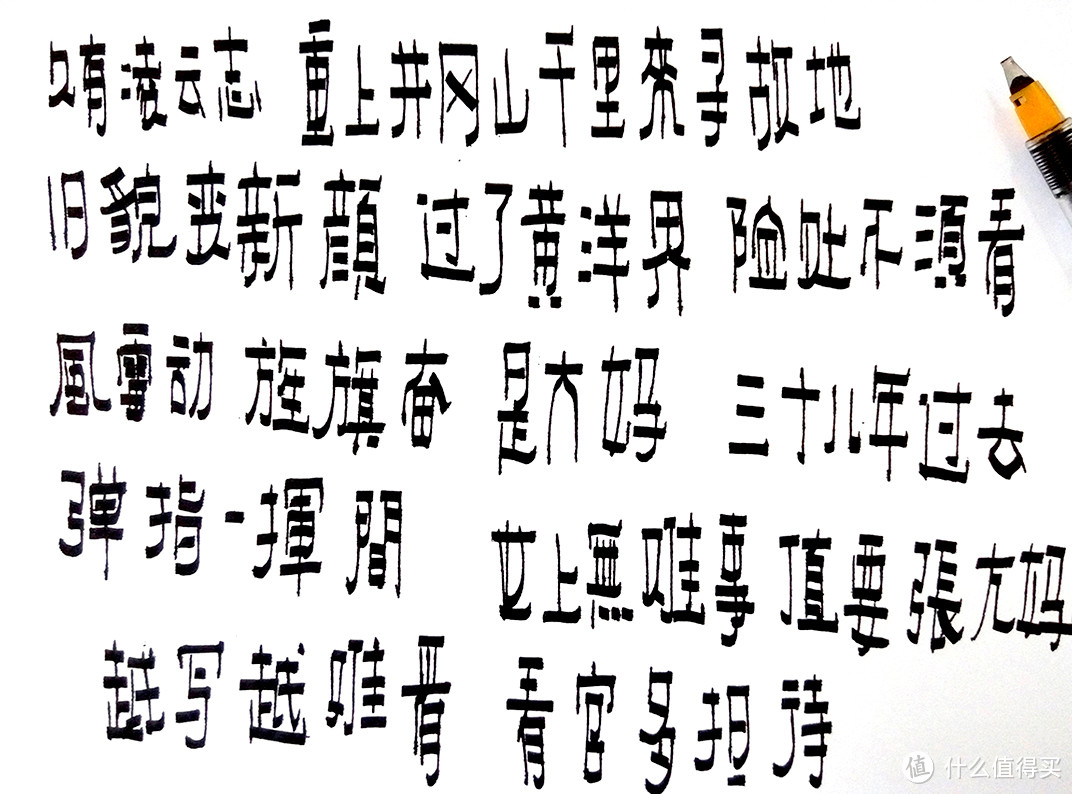 久有凌云志 重上井冈山千里來寻故地
旧貌变新顏 过了黄洋界 险处不須看
風雷动 旌旗奋 是大妈 三十八年过去
弹指一揮間 世上無难事 值要張大妈
越写越难看 看官多担待
值 什么值得买